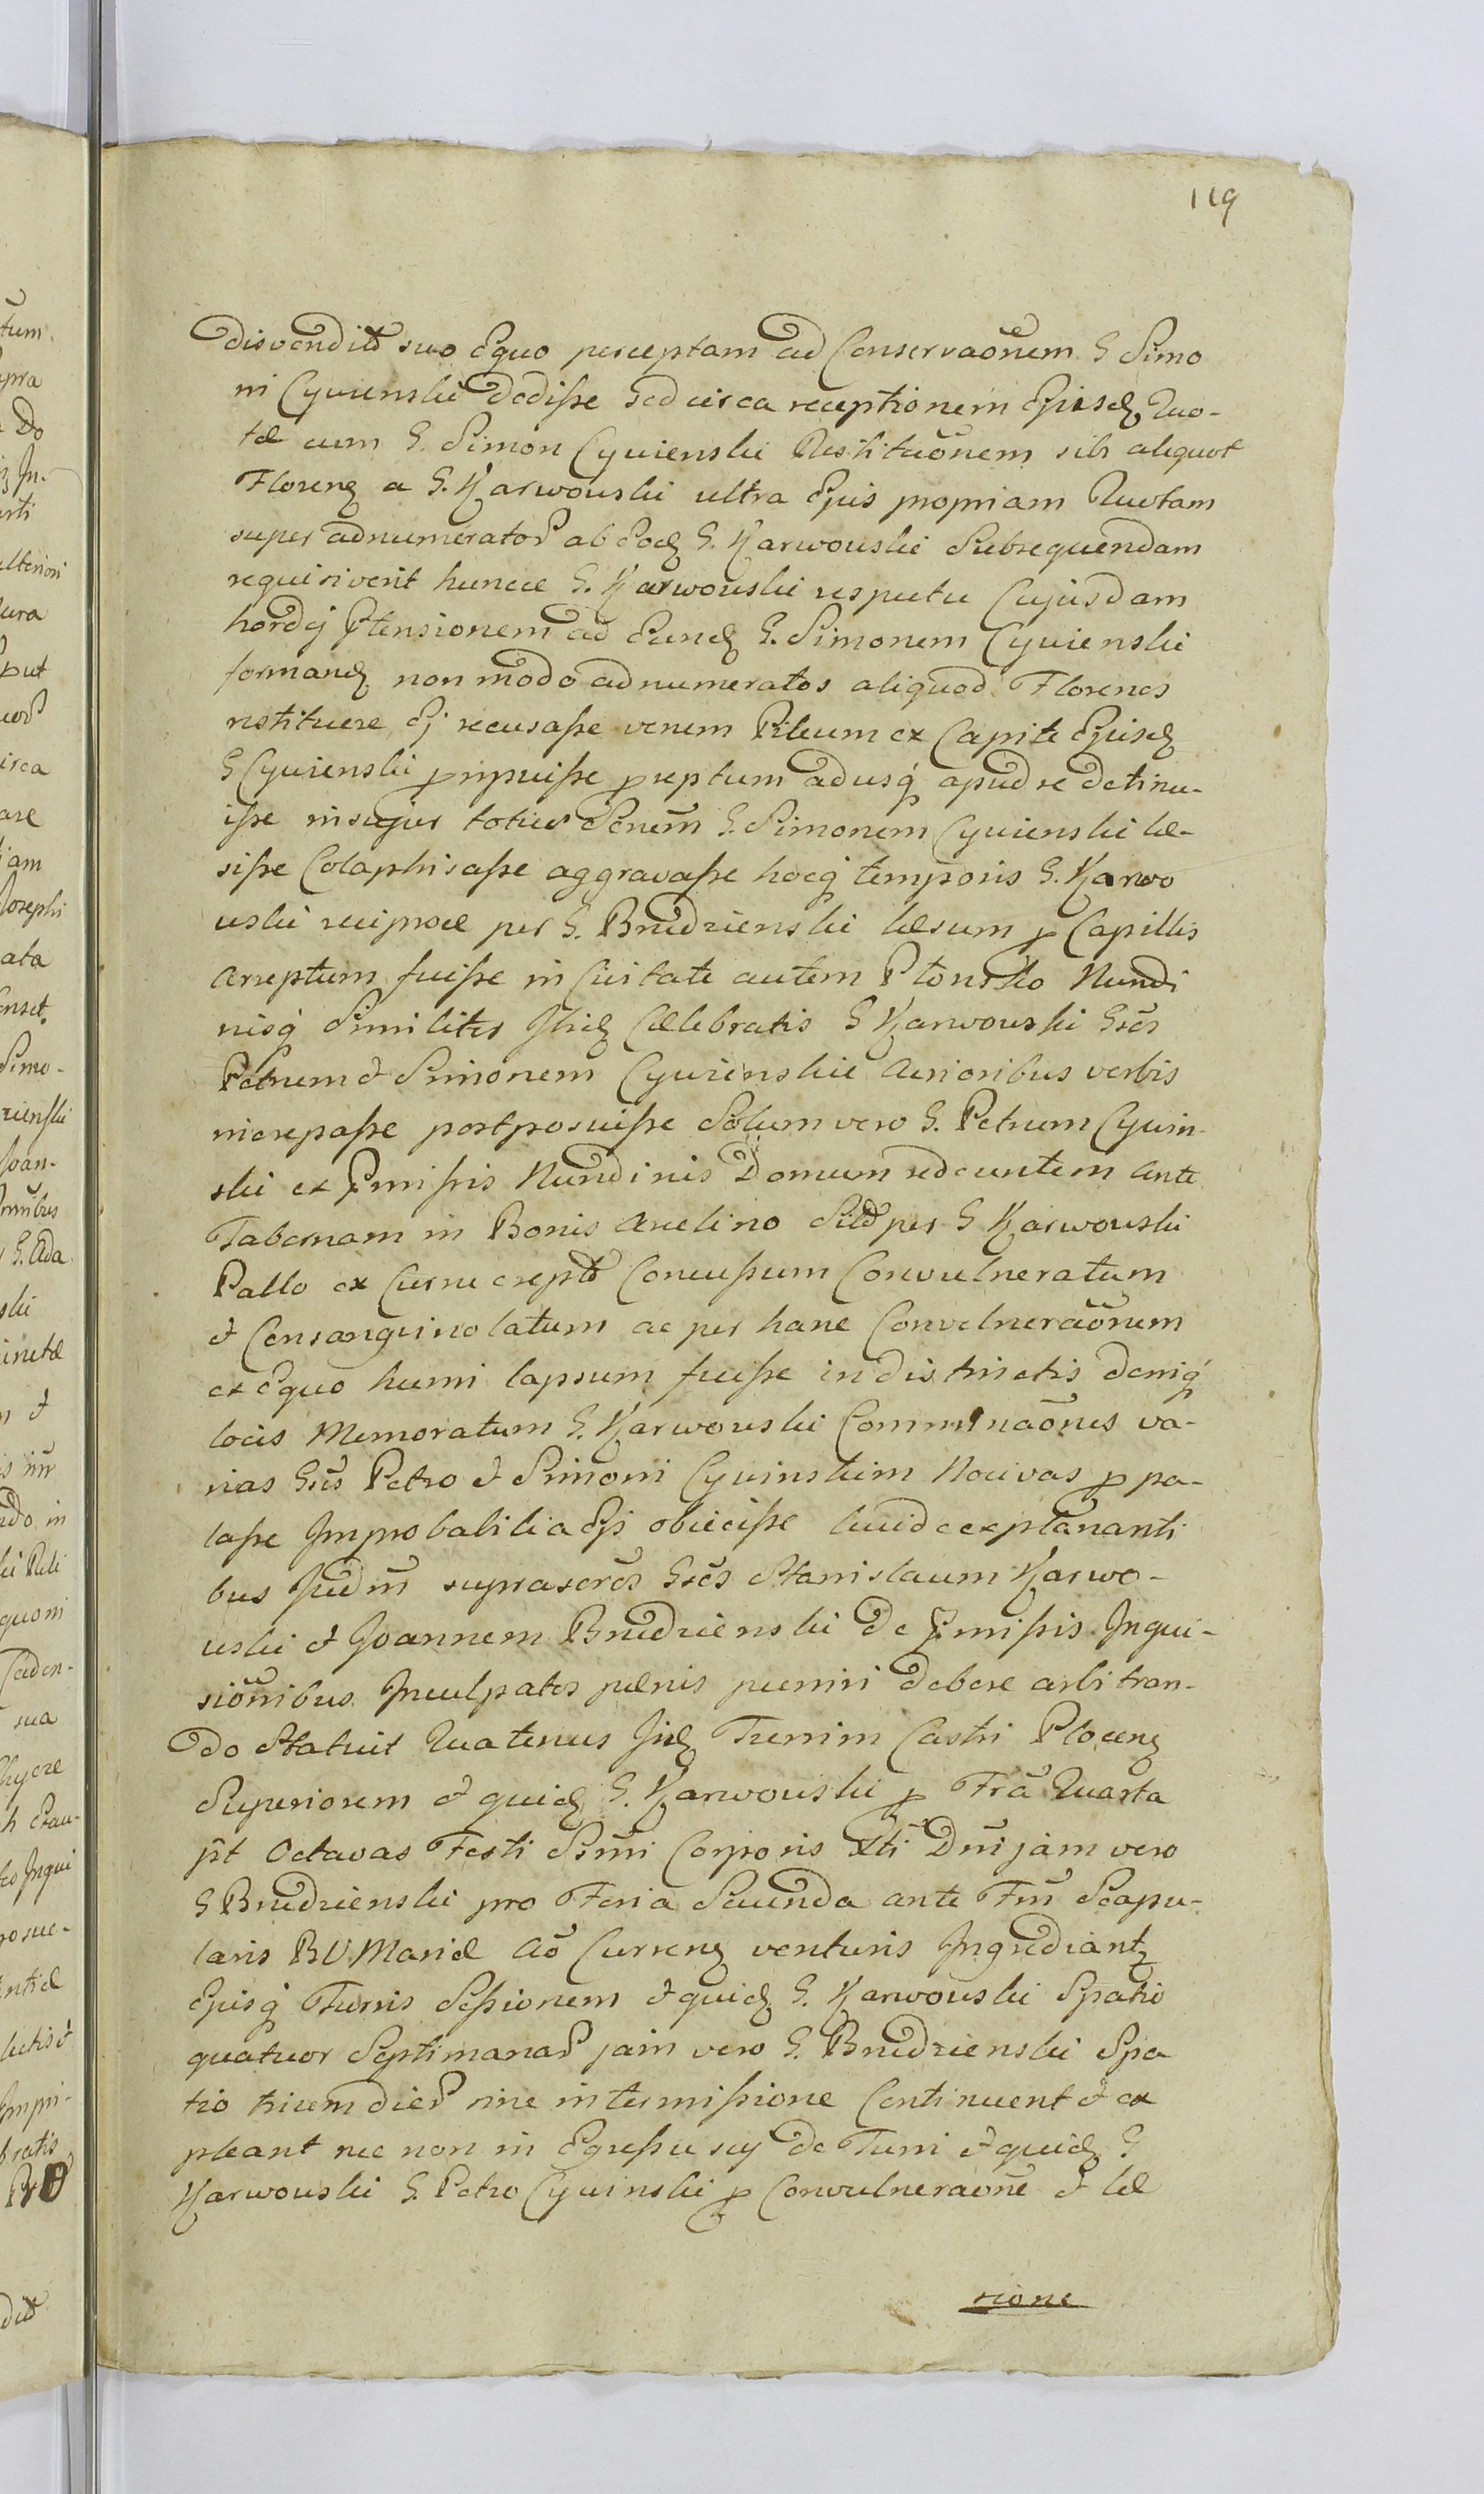 119
disvendito suo Equo perceptam ad Conservaõnem G Simo
ni Cywienski Dedisse sed circa receptionem Ejusdē Quo-
tæ cum G. Simon Cywienski Restituõnem sibi aliquot
Floreng a G. Karwowski ultra Ejus propriam Quotam
super adnumerator ab Eodē G. Karwowski Subsequendam
requisiverit huncce G. Karwowski respectu Cujusdam
hordej Ptensionem ad Eundē G. Simonem Cywienski
formandē non modo adnumeratos aliquod Florenos
restituere Ej recusasse verum Pileum ex Capite Ejusdē
G Cywienski p ripuisse p reptum adusq́ apud se detinu-
isse insuper totius Denum G. Simonem Cywienski læ-
sisse Colaphisasse aggravasse hocq́ temporis G. Karwo
wski reciproce per G. Brudzienski læsum p Capillis
arreptum fuisse in Civitate autem Płonsko Nundi
nisq́ Similiter Ibidē Cælebratis G Karwowski Gsos
Petrum & Simonem Cywienskie acrioribus verbis
increpasse postposuisse Solum vero G. Petrum Cywin-
ski ex Pmissis Nundinis Domum redeuntem ante
Tabernam in Bonis Arcelino Sito per G Karwowski
Pallo ex Curru erepto Concussum Convulneratum
& Consanguinolatum ac per hanc Convulneraõnem
ex Equo humi lapsum fuisse in distinctis deniq́
locis Memoratum G. Karwowski Comminaõnes va-
rias Gsis Petro & Simoni Cywinskim Nocivas p pa-
lasse Improbabilia Ejs obiecisse
bus Judm suprascros Gsos Stanislaum Karwo-
wski & Joannem Brudzienski De Pmissis Inqui-
siõnibus Inculpatos pænis puniri debere arbitran-
do Statuit Quatenus Jidē Turrim Castri Ploceng
Superiorem & quidē G. Karwowski p Fra Quarta
pt Octavas Festi Ssmi Corporis Xti Dni jam vero
G Brudzienski pro Feria Secunda ante Ftm Scapu-
laris B V. Mariæ aõ Curreng venturis Ingrediant
Ejusq́ Turris Sessionem & quidē G. Karwowski Spatio
quatuor Septimanar jam vero G. Brudzienski Spa
tio trium dier sine intermissione Continuent & ex
pleant nec non in Egressu suj de Turri & quidē G
Karwowski G. Petro Cywinski p Convulneraõne & læ
sione